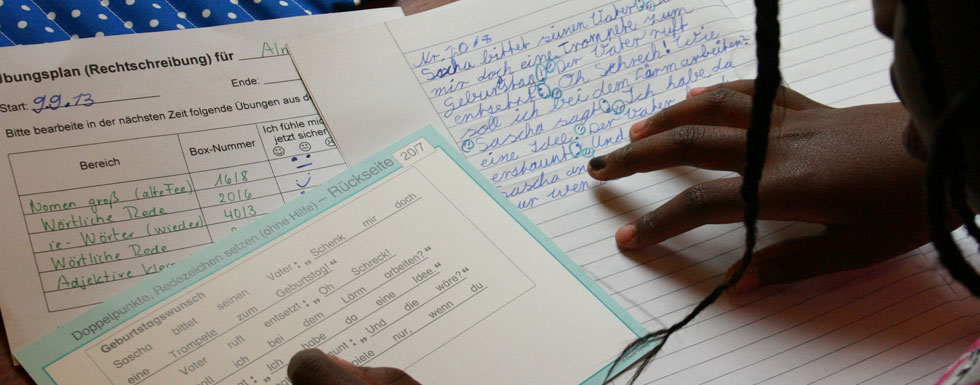 Übungsplan (Rechtschreibung) für
Start: 9.9.13 Ende:
Bitte bearbeite in der nächsten Zeit folgende Übungen aus d
Bereich Box-Nummer Ich fühle mic
jetzt sicher
Nomen groß (alte Fee) 16/8
Wörtliche Rede 20/6
ie-Wörter (wieder) 40/3
Wörtliche Rede
Adjektive
Nr. 20/8
Sascha bittet seinen Vater
mir doch eine Trompete zum
Geburtstag! Der Vater ruft
entsetzt: Oh Schreck! Wie
soll ich bei dem Lärm arbeiten?
Sascha sagt: Ich habe da
eine Idee. Der Vater
erstaunt: Und
Sascha an
ur wen
Doppelpunkte, Redezeichen setzen (ohne Hilfe) – Rückseite 20/7
Geburtstagswunsch
Sascha bittet seinen Vater: „Schenk mir doch
eine Trompete zum Geburtstag!“
Vater ruft entsetzt: „Oh Schreck!
ich bei dem Lärm arbeiten?“
habe da eine Idee.“
„Und die wäre?“
nur, wenn du